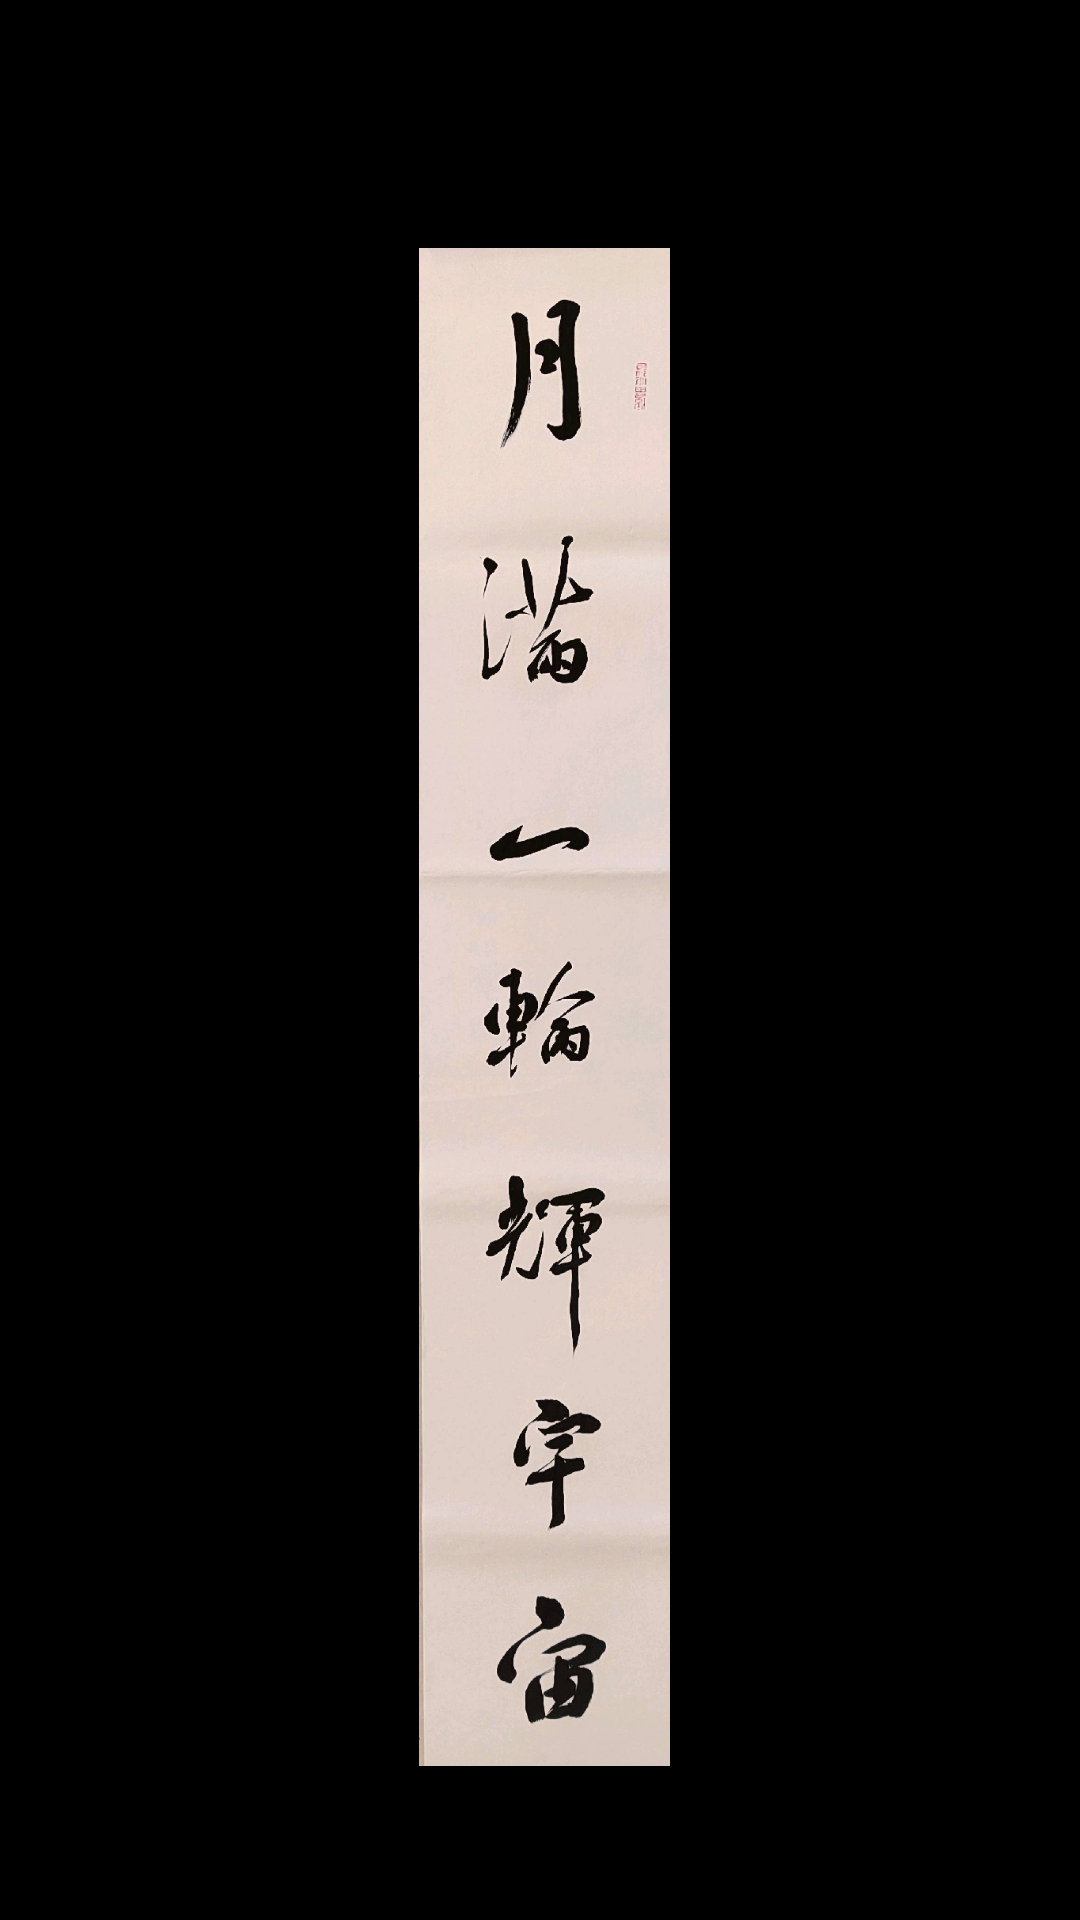 月滿一輪輝宇宙